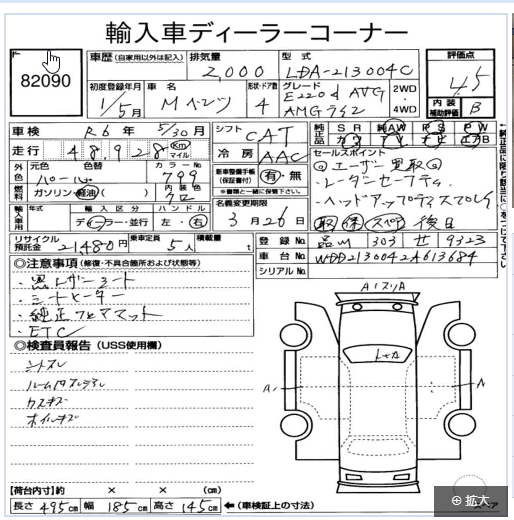 輸入車ディーラーコーナー
82090
車歴（自家用以外は記入）
排気量 2,000
型式 LDA-213004C
評価点 4.5
初度登録年月 1/5月
車名 Mベンツ
形状・ドア数 4
グレード E220d AVG AMGライン
2WD・4WD
内装補助評価 B
車検 R6年 5/30月
シフト CAT
純正品 SR 純AW PS PW
カワ ナビ TV エアB
走行 48,928 Km マイル
冷房 AAC
セールスポイント
◎ユーザー買取◎
・レーダーセーフティ
・ヘッドアップディスプレイ
取 保 スペア 後日
外色 元色 パール 色替 カラーNo 799
燃料 ガソリン・軽油（ ） 内装色 クロ
新車整備手帳（保証書付） 有・無
※書類と一緒に保管下さい。
名義変更期限 3月26日
輸入車用 年式 輸入区分 ディーラー・並行 ハンドル 左・右
リサイクル預託金 21480円 乗車定員 5人 積載量 t
登録No. 品川 303 せ 9323
車台No. WDD2130042A613684
シリアルNo.
◎注意事項（修復・不具合箇所および状態等）
・黒レザーシート
・シートヒーター
・純正フロアマット
・ETC
◎検査員報告（USS使用欄）
シートスレ
カスキズ
ホイルキズ
【荷台内寸】約 × × （cm）
長さ 495cm 幅 185cm 高さ 145cm ←（車検証上の寸法）
スペア
拡大